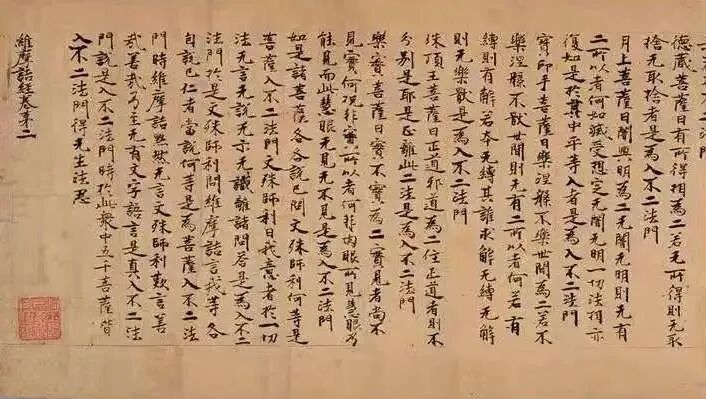 德藏菩薩曰有所得相為二若无所得則无取
捨无取捨者是為入不二法門
月上菩薩曰闇與明為二无闇无明則无有
二所以者何如滅受想定无闇无明一切法相亦
復如是於其中平等入者是為入不二法門
寶印手菩薩曰樂涅槃不樂世間為二若不
樂涅槃不猒世間則无有二所以者何若有
縛則有解若本无縛其誰求解无縛无解
則无樂猒是為入不二法門
珠頂王菩薩曰正道邪道為二住正道者則不
分別是耶是正離此二法是為入不二法門
樂實菩薩曰實不實為二實見者尚不
見實何況非實所以者何非肉眼所見慧眼乃
能見而此慧眼无見无不見是為入不二法門
如是諸菩薩各各說已問文殊師利何等是
菩薩入不二法門文殊師利曰我意者於一切
法无言无說无示无識離諸問荅是為入不二
法門於是文殊師利問維摩詰言我等各
自說已仁者當說何等是為菩薩入不二法
門時維摩詰默然无言文殊師利歎言善
哉善哉乃至无有文字語言是真入不二法
門說是入不二法門時於此衆中五千菩薩皆
入不二法門得无生法忍
維摩詰經卷第二